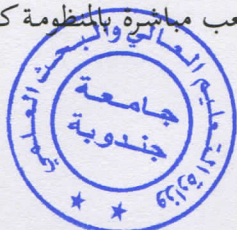 عب مباشرة بالمنظومة ك
وزارة التعليم العالي والبحث العلمي
جامعة
جندوبة